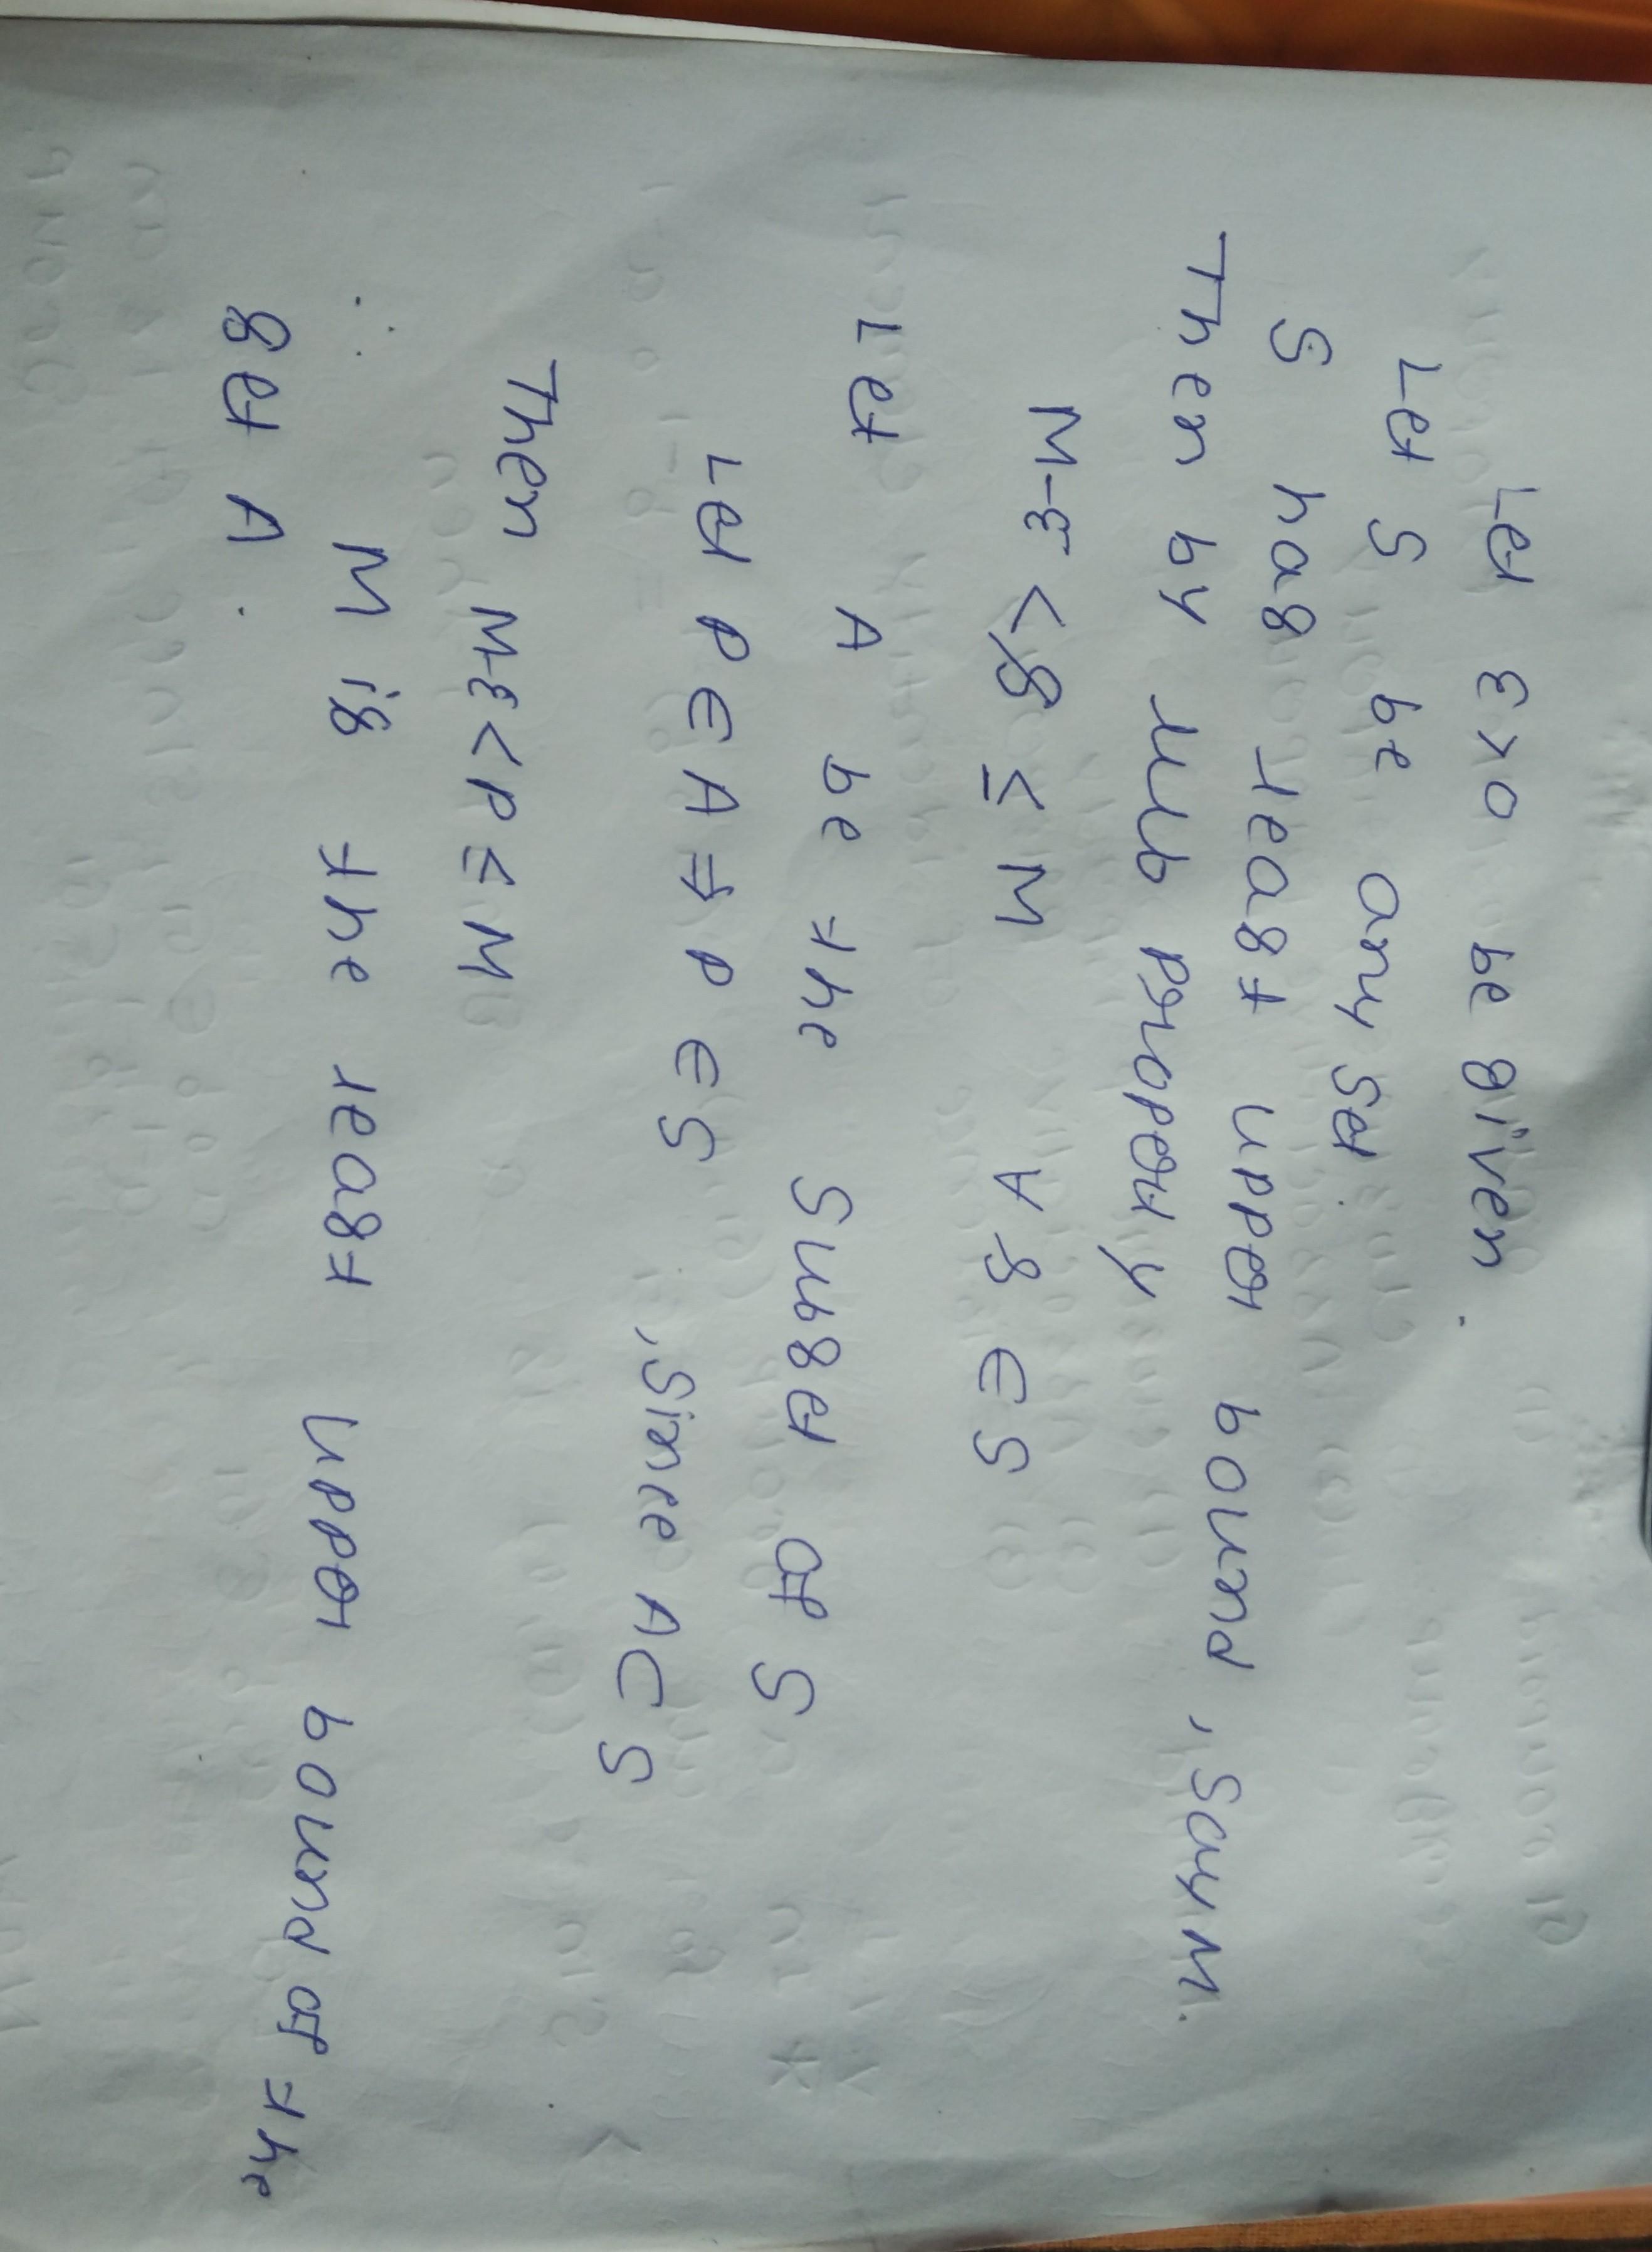 Let ε>0 be given.
Let S be any set
S has least upper bound, say M.
Then by lub property
M-ε < s ≤ M ∀ s ∈ S
Let A be the subset of S
Let p ∈ A ⇒ p ∈ S, since A ⊂ S
Then M-ε < p ≤ M
∴ M is the least upper bound of the
set A.